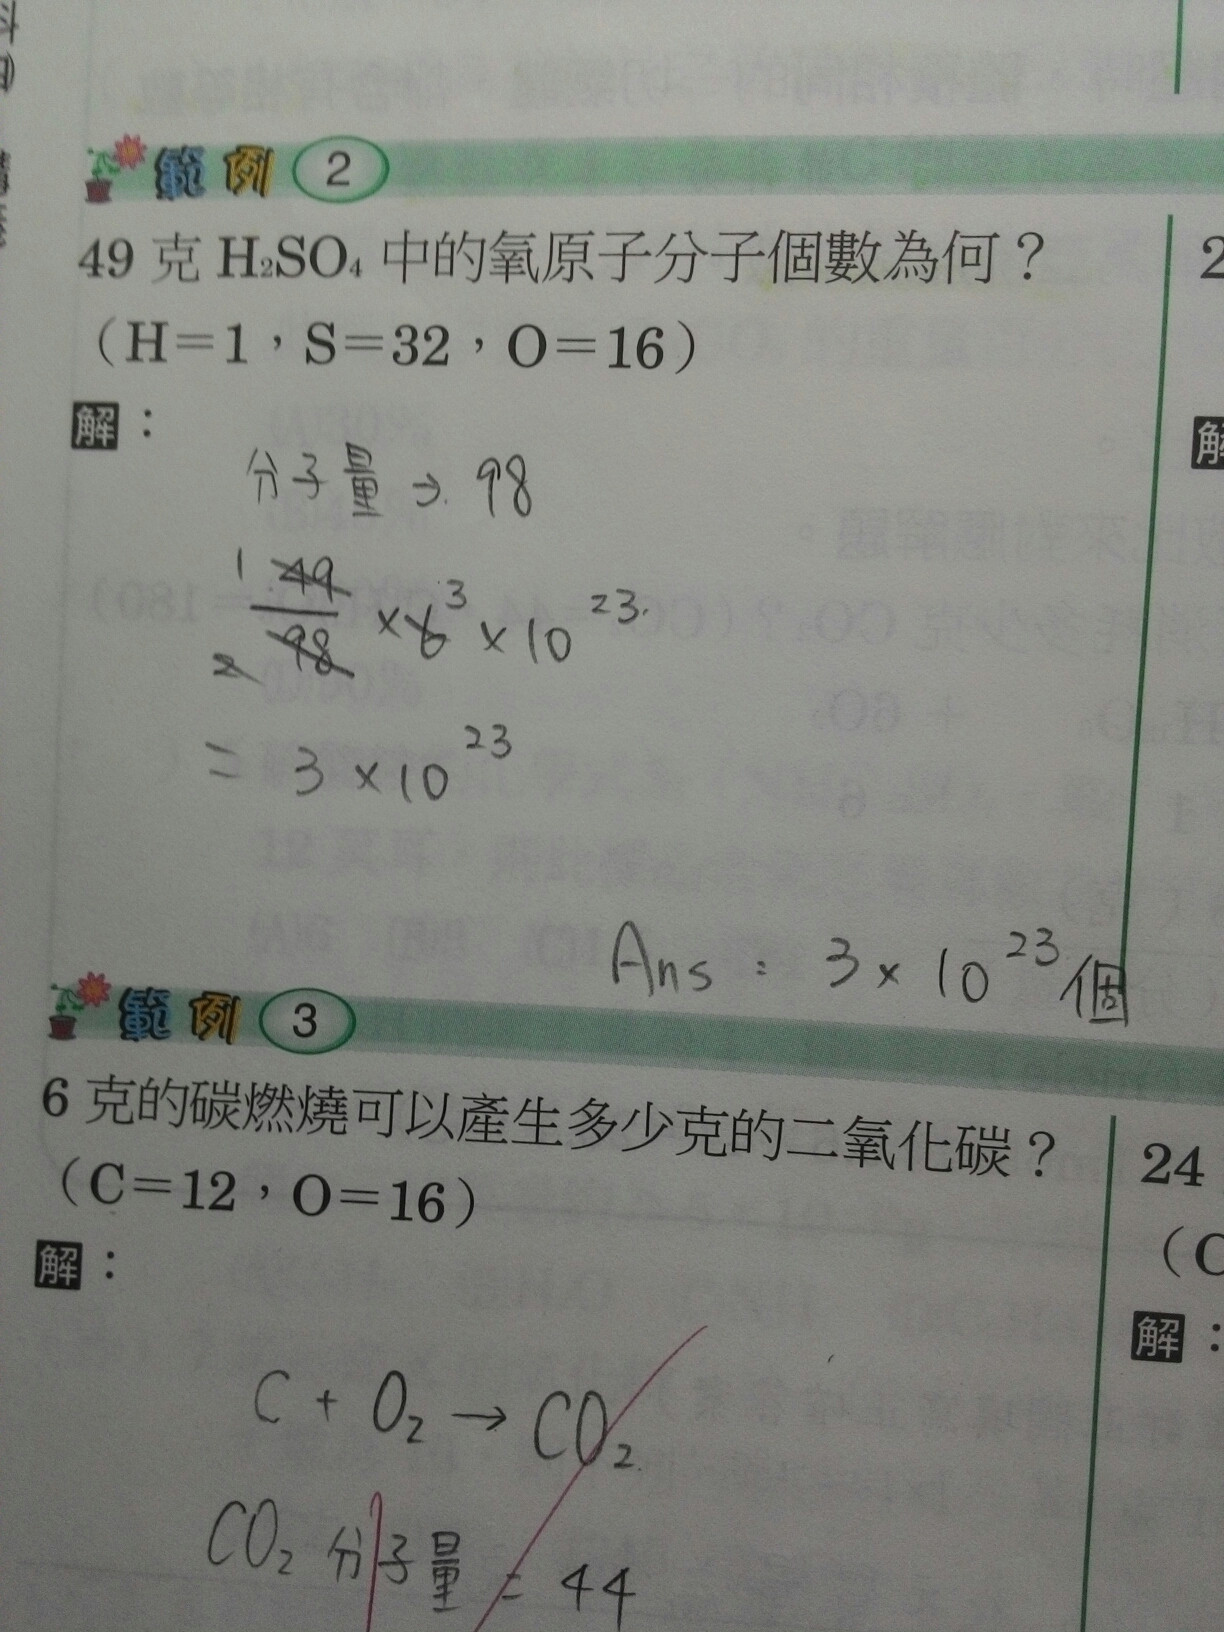 範例 2
49 克 H₂SO₄ 中的氧原子分子個數為何？
（H＝1，S＝32，O＝16）
解：
分子量 → 98
1 49
2 98 × 6 3 × 10²³
= 3 × 10²³
Ans : 3 × 10²³ 個
範例 3
6 克的碳燃燒可以產生多少克的二氧化碳？
（C＝12，O＝16）
解：
C + O₂ → CO₂
CO₂ 分子量 = 44
2
解
24
（C
解：